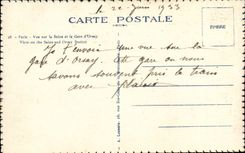 CARTE POSTALE
28 - Paris - Vue sur la Seine et la Gare d'Orsay
View on the Seine and Orsay Station
le 20 Juin 1933
Je t'envoie une vue sur la
gare d'Orsay. gare ou nous
avons souvent pris le train
avec plaisir